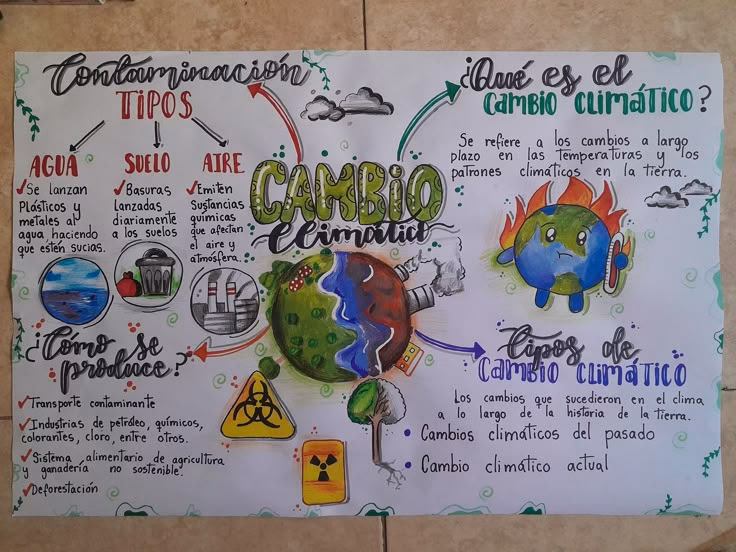 Contaminación
TIPOS
AGUA
✓Se lanzan
Plásticos y
metales al
agua haciendo
que estén sucias.
SUELO
✓Basuras
lanzadas
diariamente
a los suelos
AIRE
✓Emiten
Sustancias
químicas
que afectan
el aire y
atmósfera.
CAMBIO
Climático
¿Qué es el
CAMBIO CLIMÁTICO?
Se refiere a los cambios a largo
plazo en las Temperaturas y los
patrones climáticos en la tierra.
¿Cómo se
produce?
✓Transporte contaminante
✓Industrias de petróleo, químicos,
colorantes, cloro, entre otros.
✓Sistema alimentario de agricultura
y ganadería no sostenible.
✓Deforestación
Tipos de
CAMBIO CLIMÁTICO
Los cambios que sucedieron en el clima
a lo largo de la historia de la tierra.
• Cambios climáticos del pasado
• Cambio climático actual